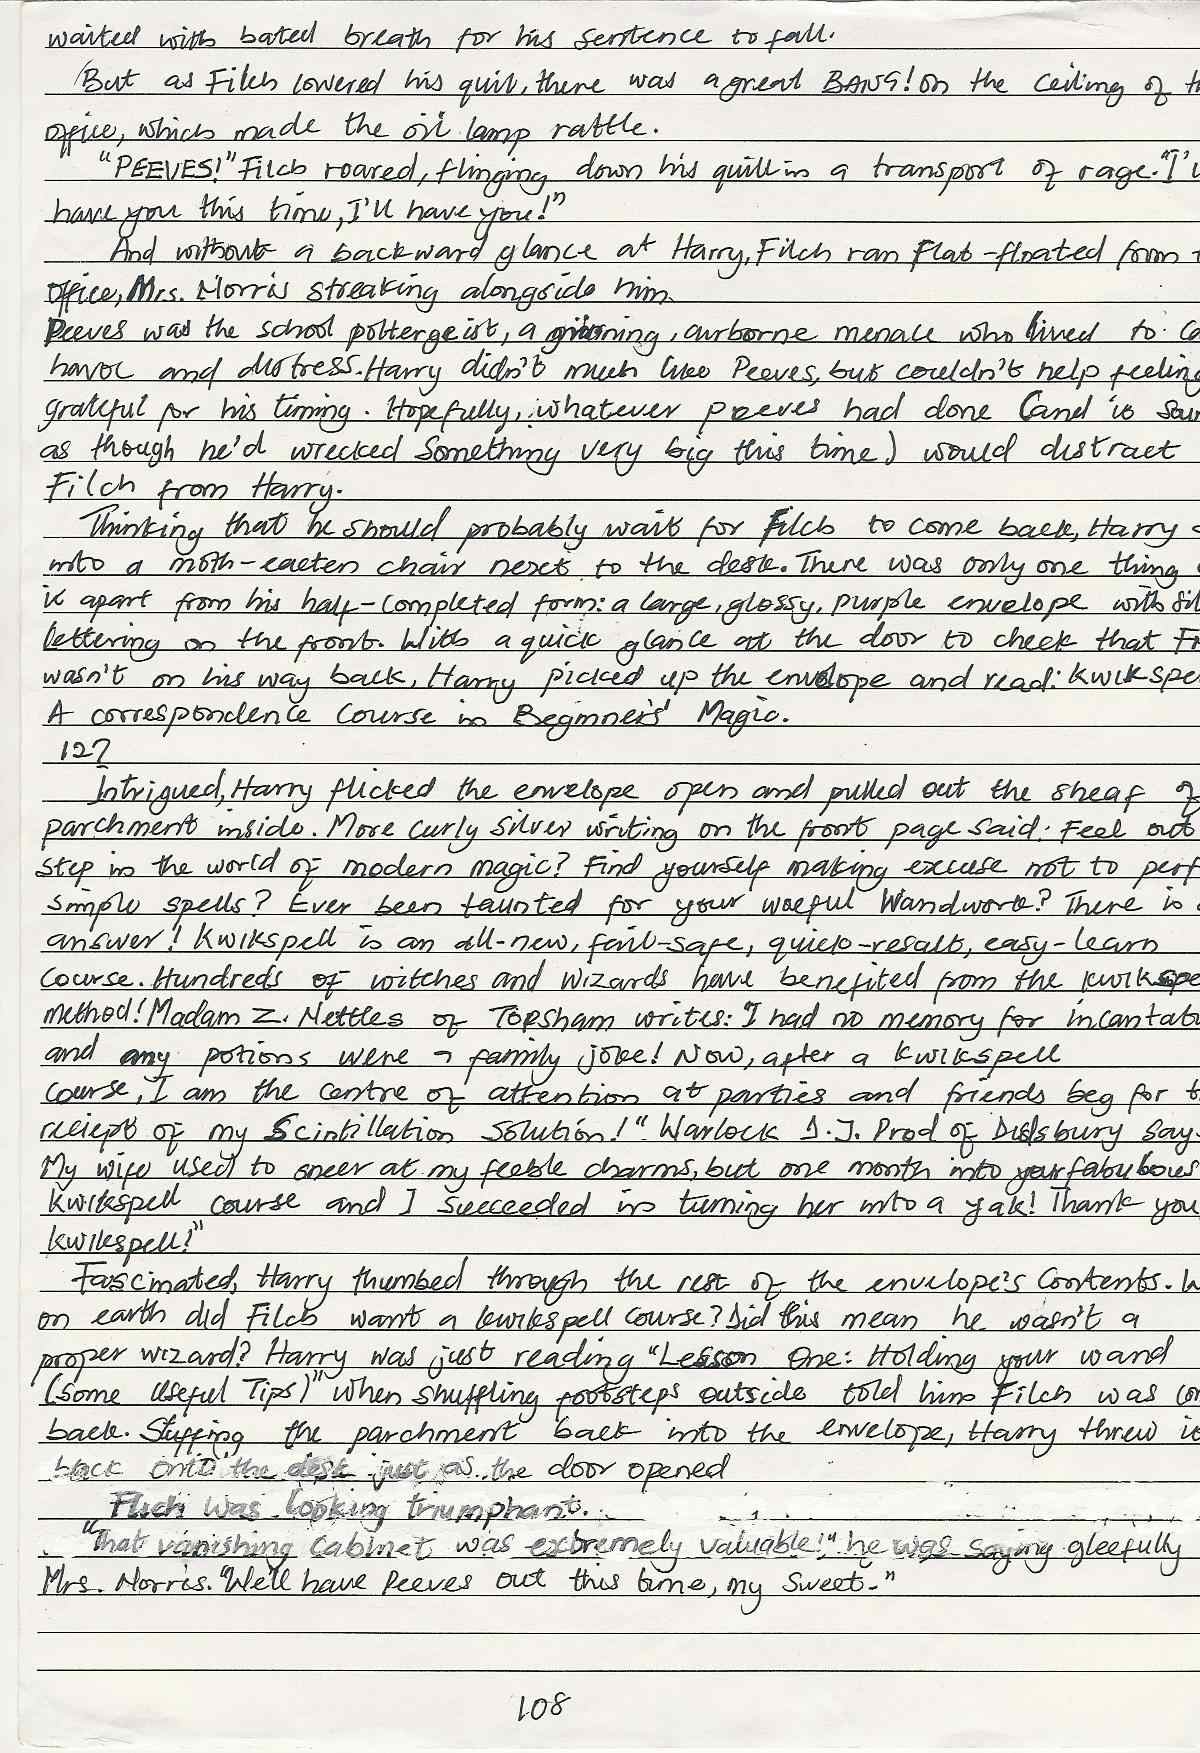 waited with bated breath for his sentence to fall.
But as Filch lowered his quill, there was a great BANG! on the ceiling of
office, which made the oil lamp rattle.
"PEEVES!" Filch roared, flinging down his quill in a transport of rage. "I'
have you this time, I'll have you!"
And without a backward glance at Harry, Filch ran flat-floated from
office, Mrs. Norris streaking alongside him.
Peeves was the school poltergeist, a grinning, airborne menace who lived to
havoc and distress. Harry didn't much like Peeves, but couldn't help feeling
grateful for his timing. Hopefully, whatever peeves had done (and it
as though he'd wrecked Something very big this time) would distract
Filch from Harry.
Thinking that he should probably wait for Filch to come back, Harry
into a moth-eaeten chair next to the desk. There was only one thing
it apart from his half-completed form: a large, glossy, purple envelope with Sil
lettering on the front. With a quick glance at the door to check that
wasn't on his way back, Harry picked up the envelope and read: Kwikspe
A correspondence Course in Beginners' Magic.
127
Intrigued, Harry flicked the envelope open and pulled out the sheaf of
parchment inside. More curly silver writing on the front page said: Feel out
step in the world of modern magic? Find yourself making excuse not to perf
simple spells? Ever been taunted for your woeful Wandwork? There is
answer! Kwikspell is an all-new, fail-safe, quick-result, easy-learn
Course. Hundreds of witches and wizards have benefited from the kwikspe
method! Madam Z. Nettles of Topsham writes: "I had no memory for incantati
and any potions were a family joke! Now, after a Kwikspell
course, I am the centre of attention at parties and friends beg for
reciept of my Scintillation Solution!" Warlock D.J. Prod of Didsbury say
My wife used to sneer at my feeble charms, but one month into your fabulous
Kwikspell course and I succeeded in turning her into a yak! Thank you
kwikspell!"
Fascinated, Harry thumbed through the rest of the envelope's Contents.
on earth did Filch want a kwikspell Course? Did this mean he wasn't a
proper wizard? Harry was just reading "Lesson One: Holding your wand
(some Useful Tips)" when shuffling footsteps outside told him Filch was
back. Stuffing the parchment back into the envelope, Harry threw it
back onto the desk just as the door opened
Filch was looking triumphant.
"That vanishing Cabinet was extremely valuable!" he was saying gleefully
Mrs. Norris. "We'll have Peeves out this time, my Sweet-"
108